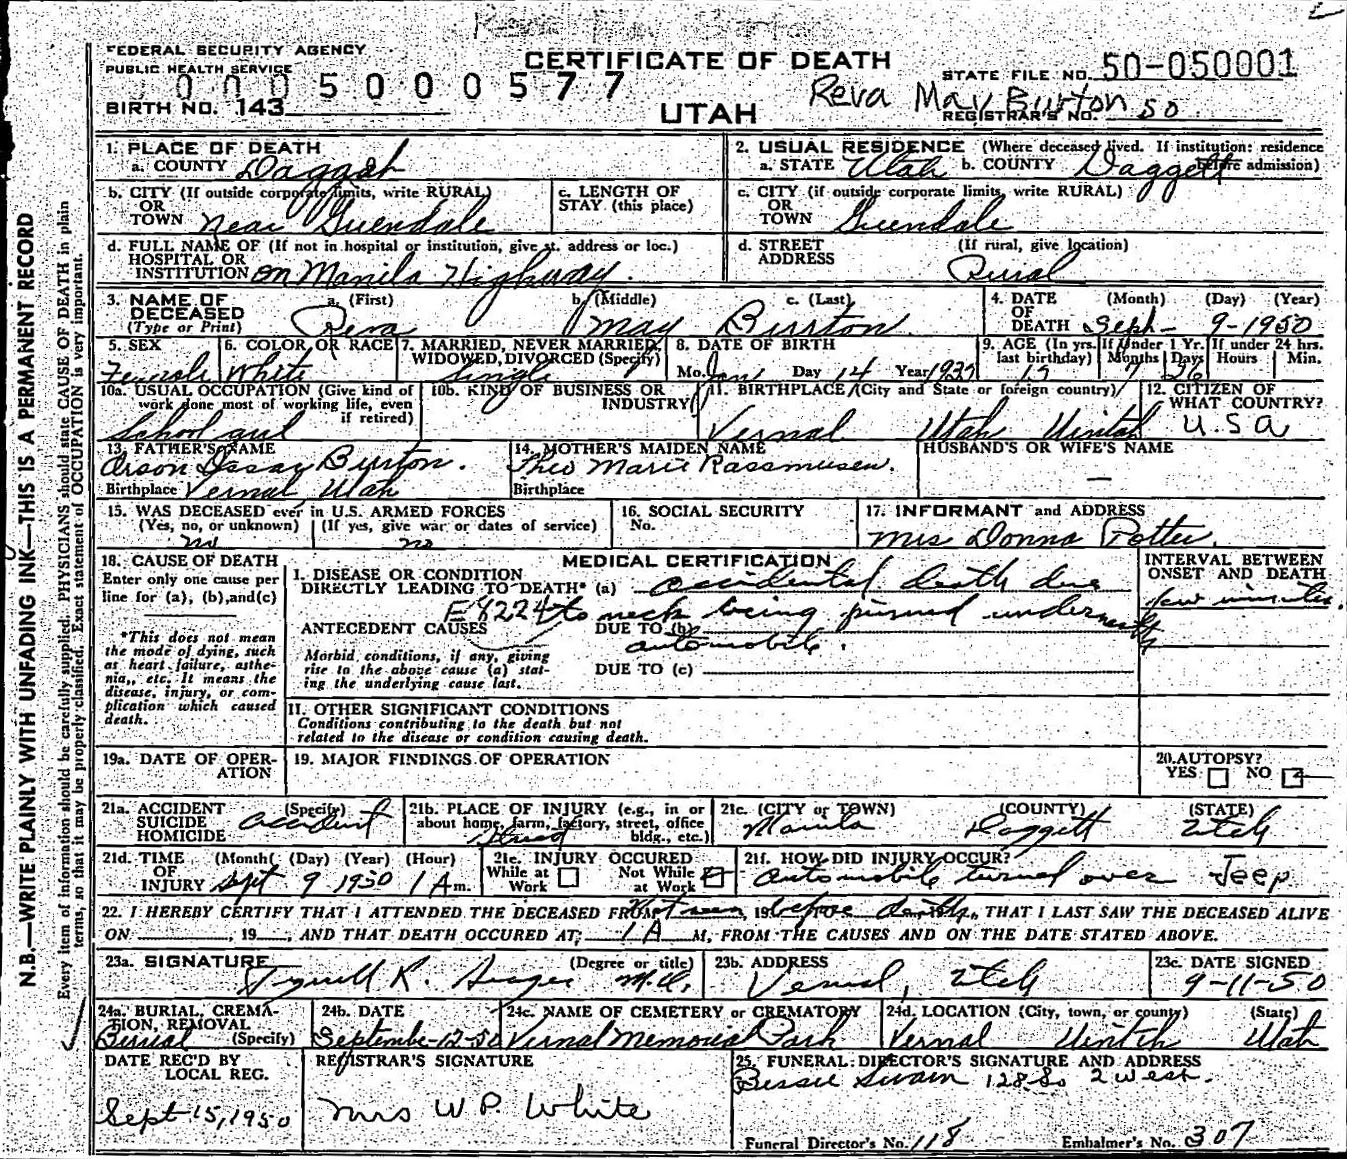 Reva May Burton
FEDERAL SECURITY AGENCY
PUBLIC HEALTH SERVICE
CERTIFICATE OF DEATH
STATE FILE NO. 50-050001
0005000577
Reva May Burton
BIRTH NO. 143
UTAH
REGISTRAR'S NO. 50
1. PLACE OF DEATH
a. COUNTY Daggett
2. USUAL RESIDENCE (Where deceased lived. If institution: residence before admission)
a. STATE Utah b. COUNTY Daggett
b. CITY (If outside corporate limits, write RURAL)
OR
TOWN near Greendale
c. LENGTH OF
STAY (this place)
c. CITY (if outside corporate limits, write RURAL)
OR
TOWN Greendale
d. FULL NAME OF (If not in hospital or institution, give st. address or loc.)
HOSPITAL OR
INSTITUTION on Manila Highway.
d. STREET (If rural, give location)
ADDRESS Rural
3. NAME OF a. (First) b. (Middle) c. (Last)
DECEASED
(Type or Print) Reva May Burton
4. DATE (Month) (Day) (Year)
OF
DEATH Sept- 9-1950
5. SEX
Female
6. COLOR OR RACE
White
7. MARRIED, NEVER MARRIED,
WIDOWED, DIVORCED (Specify)
Single
8. DATE OF BIRTH
Mo. Jan Day 14 Year 1937
9. AGE (In yrs. last birthday) If Under 1 Yr. If under 24 hrs.
Months Days Hours Min.
7 26
10a. USUAL OCCUPATION (Give kind of
work done most of working life, even
if retired)
School girl
10b. KIND OF BUSINESS OR
INDUSTRY
11. BIRTHPLACE (City and State or foreign country)
Vernal Utah Uintah
12. CITIZEN OF
WHAT COUNTRY?
U.S.A
13. FATHER'S NAME
Orson Burton.
Birthplace Vernal, Utah
14. MOTHER'S MAIDEN NAME
Theo Marie Rassmusen.
Birthplace
HUSBAND'S OR WIFE'S NAME
—
15. WAS DECEASED ever in U.S. ARMED FORCES
(Yes, no, or unknown) (If yes, give war or dates of service)
no no
16. SOCIAL SECURITY
No.
17. INFORMANT and ADDRESS
Mrs Donna Potter.
18. CAUSE OF DEATH
Enter only one cause per
line for (a), (b), and (c)
*This does not mean
the mode of dying, such
as heart failure, asthe-
nia, etc. It means the
disease, injury, or com-
plication which caused
death.
MEDICAL CERTIFICATION
1. DISEASE OR CONDITION
DIRECTLY LEADING TO DEATH* (a) accidental death due
E8224 to neck being pinned underneath
ANTECEDENT CAUSES DUE TO (b)
automobile.
Morbid conditions, if any, giving
rise to the above cause (a) stat-
ing the underlying cause last.
DUE TO (c)
INTERVAL BETWEEN
ONSET AND DEATH
few minutes.
11. OTHER SIGNIFICANT CONDITIONS
Conditions contributing to the death but not
related to the disease or condition causing death.
19a. DATE OF OPER-
ATION
19. MAJOR FINDINGS OF OPERATION
20. AUTOPSY?
YES NO
21a. ACCIDENT (Specify)
SUICIDE accident
HOMICIDE
21b. PLACE OF INJURY (e.g., in or
about home, farm, factory, street, office
bldg., etc.)
Street
21c. (CITY or TOWN) (COUNTY) (STATE)
Manila Daggett Utah
21d. TIME (Month) (Day) (Year) (Hour)
OF
INJURY Sept 9 1950 1 A m.
21e. INJURY OCCURED
While at Work Not While at Work
21f. HOW DID INJURY OCCUR?
automobile turned over Jeep
22. I HEREBY CERTIFY THAT I ATTENDED THE DECEASED FROM Not seen, 19 before death, THAT I LAST SAW THE DECEASED ALIVE
ON , 19 , AND THAT DEATH OCCURED AT 1 A M, FROM THE CAUSES AND ON THE DATE STATED ABOVE.
23a. SIGNATURE (Degree or title)
R. M.D.
23b. ADDRESS
Vernal, Utah
23c. DATE SIGNED
9-11-50
24a. BURIAL, CREMA-
TION, REMOVAL
Burial (Specify)
24b. DATE
September-12-50
24c. NAME OF CEMETERY or CREMATORY
Vernal Memorial Park
24d. LOCATION (City, town, or county) (State)
Vernal Uintah Utah
DATE REC'D BY
LOCAL REG.
Sept 15, 1950
REGISTRAR'S SIGNATURE
Mrs W P. White
25. FUNERAL DIRECTOR'S SIGNATURE AND ADDRESS
Bessie Swain 128 So 2 West.
Funeral Director's No. 118 Embalmer's No. 307
N.B.—WRITE PLAINLY WITH UNFADING INK—THIS IS A PERMANENT RECORD
Every item of information should be carefully supplied. PHYSICIANS should state CAUSE OF DEATH in plain
terms, so that it may be properly classified. Exact statement of OCCUPATION is very important.